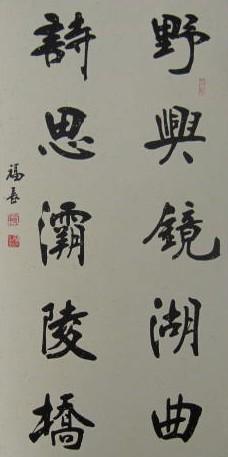 野興鏡湖曲
詩思灞陵橋
福長